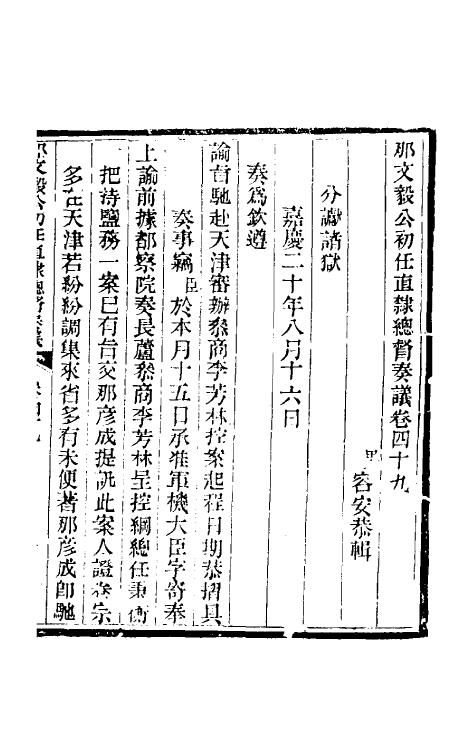 那文毅公初任直隸總督奏議卷四十九
男容安恭輯
分讞諸獄
嘉慶二十年八月十六日
奏爲欽遵
諭旨馳赴天津審辦叅商李芳林控案起程日期恭摺具
奏事竊臣於本月十五日承准軍機大臣字寄奉
上諭前據都察院奏長蘆叅商李芳林呈控綱總任秉衡
把持鹽務一案已有旨交那彥成提訊此案人證卷宗
多在天津若紛紛調集來省多有未便著那彥成卽馳
那文毅公初任直隸總督奏議 卷四十九